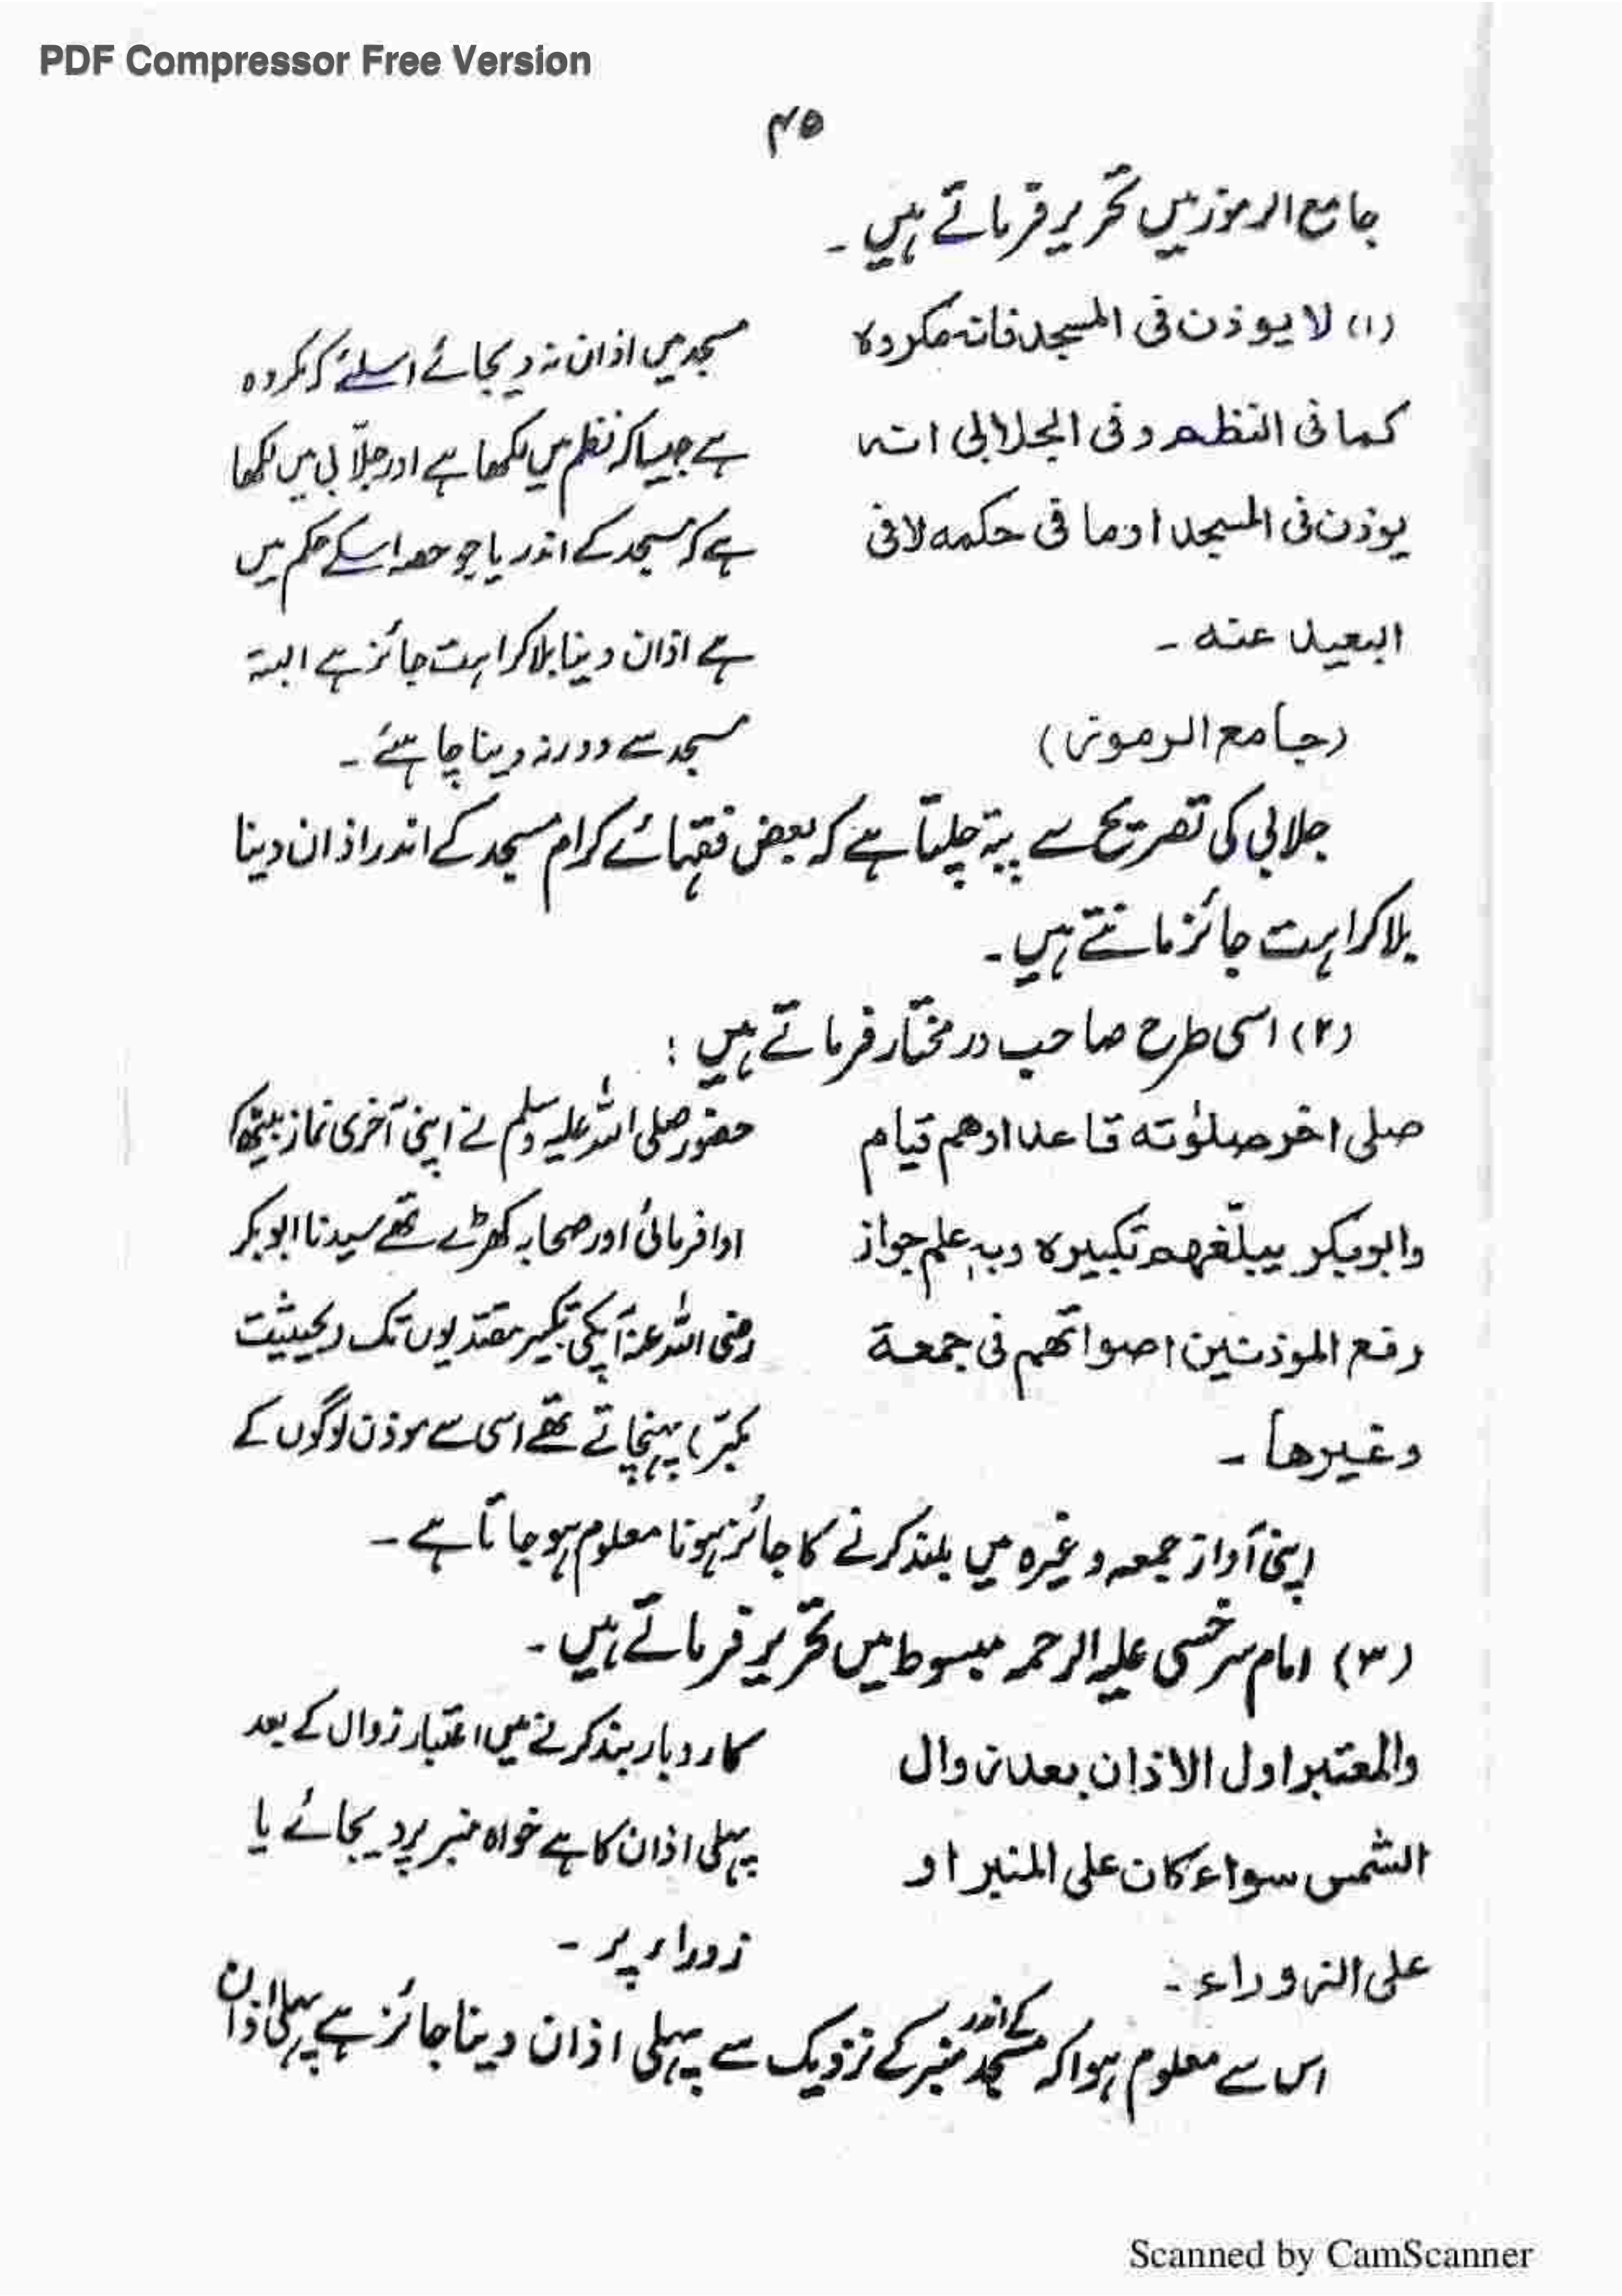 PDF Compressor Free Version
۴۵
جامع الرموز میں تحریر فرماتے ہیں ۔
(۱) لا یوذن فی المسجد فانہ مکروہ
کما فی النظم و فی الجلالی انہ
یوذن فی المسجد او ما فی حکمہ لا فی
البعید عنہ ۔
(جامع الرموز)
مسجد میں اذان نہ دیجائے اسلئے کہ مکروہ
ہے جیسا کہ نظم میں لکھا ہے اور جلّابی میں لکھا
ہے کہ مسجد کے اندر یا جو حصہ اسکے حکم میں
ہے اذان دینا بلا کراہت جائز ہے البتہ
مسجد سے دور نہ دینا چاہئے ۔
جلابی کی تصریح سے پتہ چلتا ہے کہ بعض فقہائے کرام مسجد کے اندر اذان دینا
بلا کراہت جائز مانتے ہیں ۔
(۲) اسی طرح صاحب در مختار فرماتے ہیں :
صلی اخر صلوٰتہ قاعدا وھم قیام
وابوبکر یبلّغھم تکبیرہ وبہ علم جواز
رفع الموذنین اصواتھم فی جمعة
وغیرھا ۔
حضور صلی اللہ علیہ وسلم نے اپنی آخری نماز بیٹھکر
ادا فرمائی اور صحابہ کھڑے تھے سیدنا ابوبکر
رضی اللہ عنہ آپکی تکبیر مقتدیوں تک (بحیثیت
مکبّر) پہنچاتے تھے اسی سے موذن لوگوں کے
اپنی آواز جمعہ وغیرہ میں بلند کرنے کا جائز ہونا معلوم ہو جاتا ہے ۔
(۳) امام سرخسی علیہ الرحمہ مبسوط میں تحریر فرماتے ہیں ۔
والمعتبر اول الاذان بعد زوال
الشمس سواء کان علی المنبر او
علی الزوراء ۔
کاروبار بند کرنے میں اعتبار زوال کے بعد
پہلی اذان کا ہے خواہ منبر پر دیجائے یا
زوراء پر ۔
اس سے معلوم ہوا کہ مسجد کے اندر منبر کے نزدیک سے پہلی اذان دینا جائز ہے پہلی اذان
Scanned by CamScanner